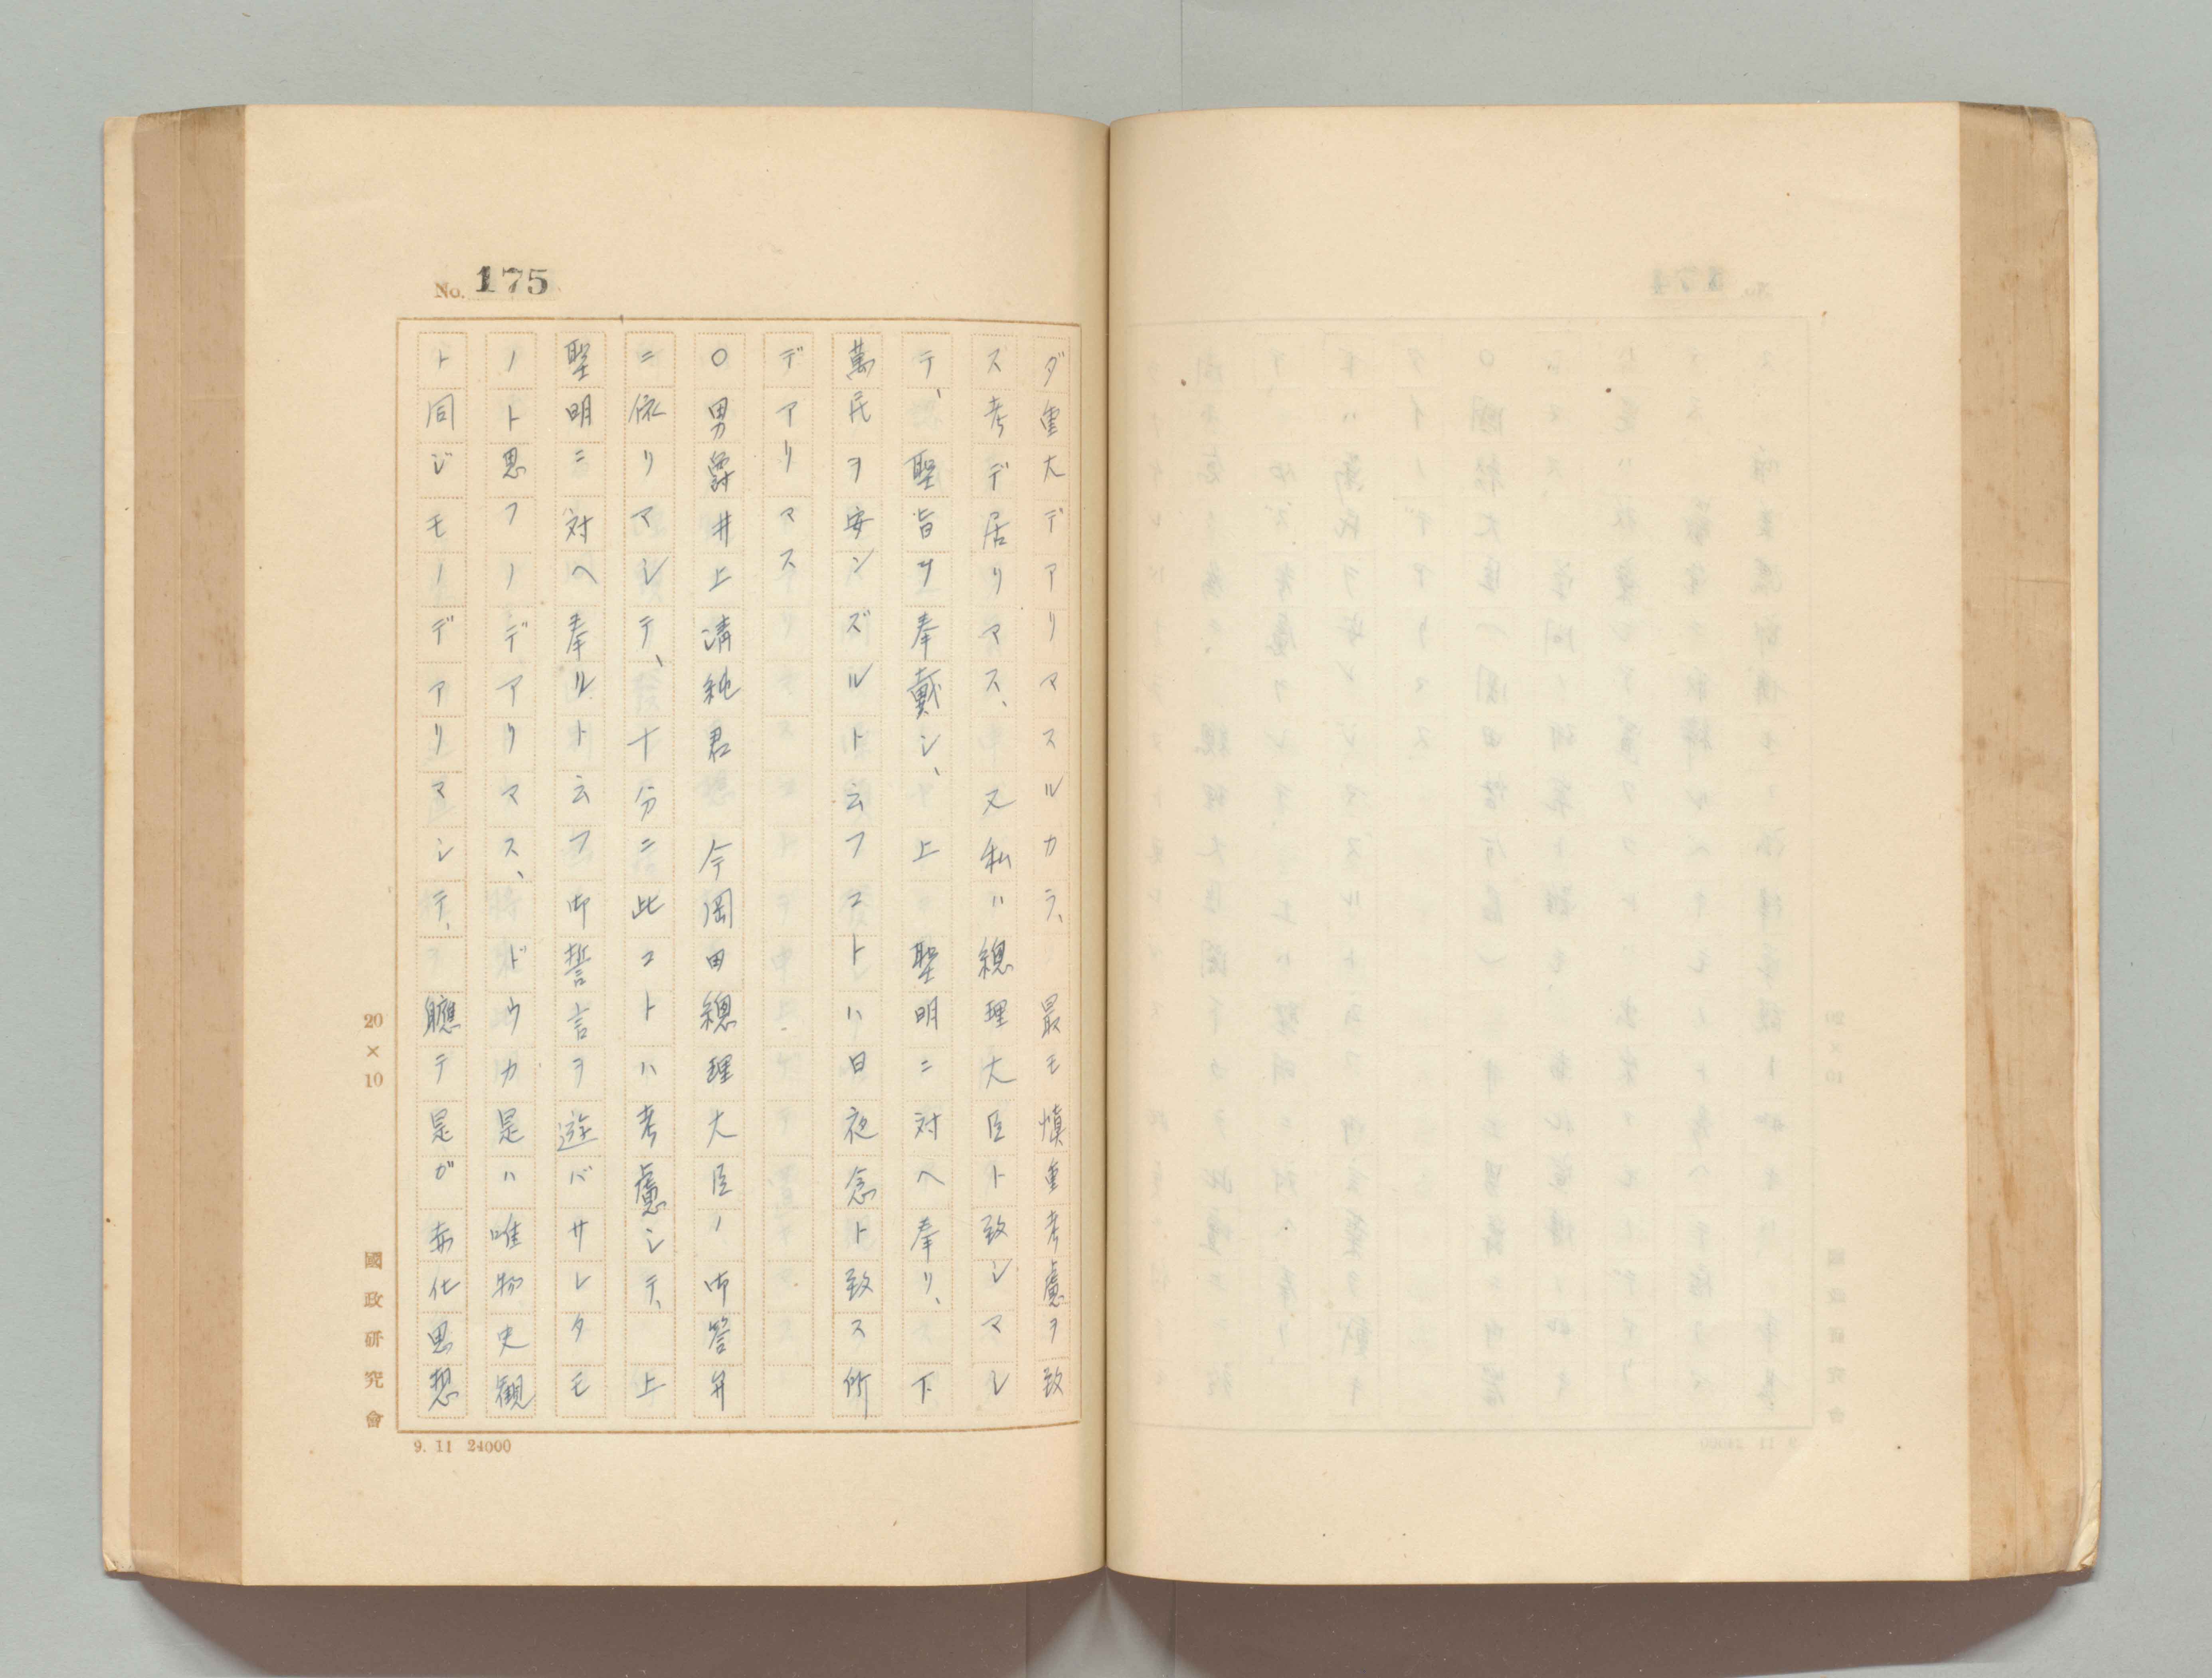 No. 175
ダ重大デアリマスルカラ、最モ慎重考慮ヲ致
ス考デ居リマス、又私ハ總理大臣ト致シマシ
テ、聖旨ヲ奉戴シ、上聖明ニ対ヘ奉リ、下
萬民ヲ安ンズルト云フコトハ日夜念ト致ス所
デアリマス
○男爵井上清純君 今岡田總理大臣ノ御答弁
ニ依リマシテ、十分ニ此コトハ考慮シテ、上
聖明ニ対ヘ奉ルト云フ御誓言ヲ遊バサレタモ
ノト思フノデアリマス、ドウカ是ハ唯物史観
ト同ジモノデアリマシテ、軈テ是ガ赤化思想
20×10
國政研究會
9. 11 24000